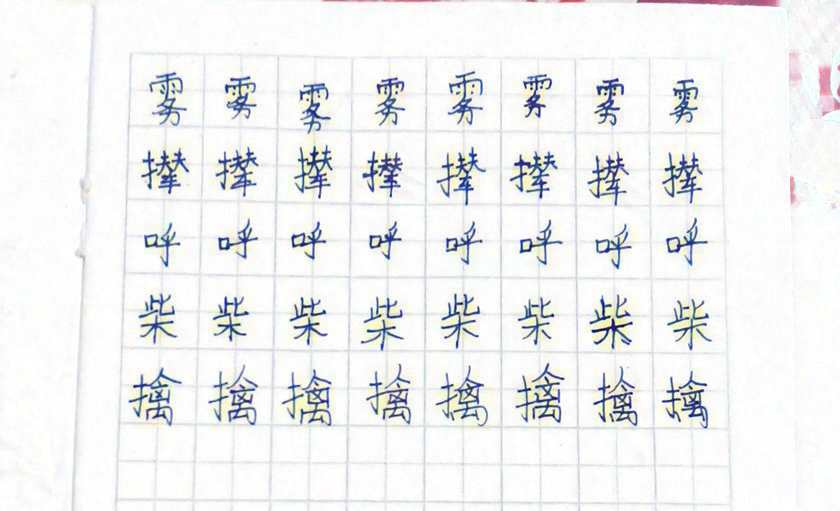 雾雾雾雾雾雾雾雾
撵撵撵撵撵撵撵撵
呼呼呼呼呼呼呼呼
柴柴柴柴柴柴柴柴
擒擒擒擒擒擒擒擒